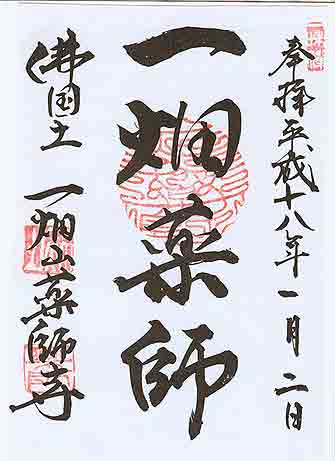 奉拝 平成十八年一月二日
一畑薬師
佛国土 一畑山薬師寺